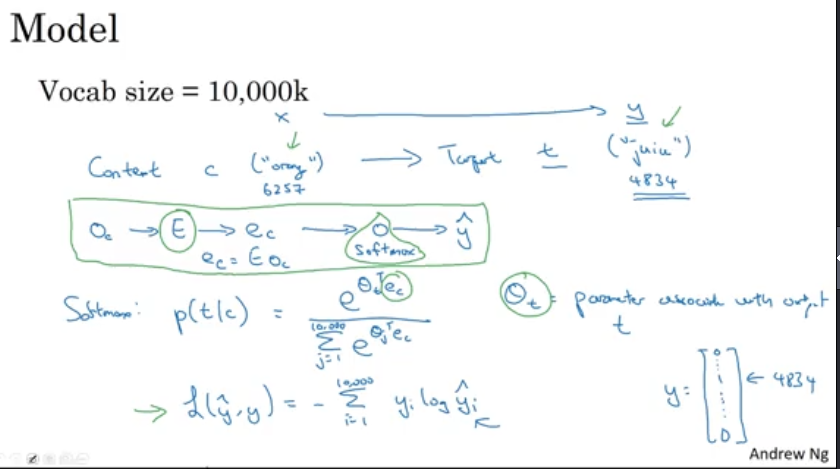 Model
Vocab size = 10,000k
x → y
Content c ("orange") → Target t ("juice")
6257 4834
O_c → E → e_c → O → ŷ
softmax
e_c = E O_c
Softmax: p(t|c) = e^{θ_t^T e_c} / Σ_{j=1}^{10,000} e^{θ_j^T e_c}
θ_t = parameter associated with output t
→ L(ŷ, y) = - Σ_{i=1}^{10,000} y_i log ŷ_i
y = [0 ⋮ 1 ⋮ 0] ← 4834
Andrew Ng